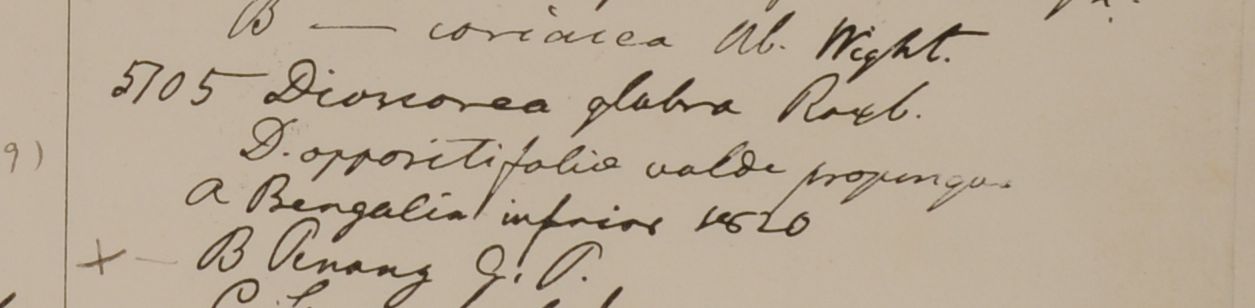 B — coriacea Hb. Wight.
5105 Dioscorea glabra Roxb.
9) D. oppositifoliæ valde propinqua.
a Bengalia inferior 1820
+ — B Penang G. P.